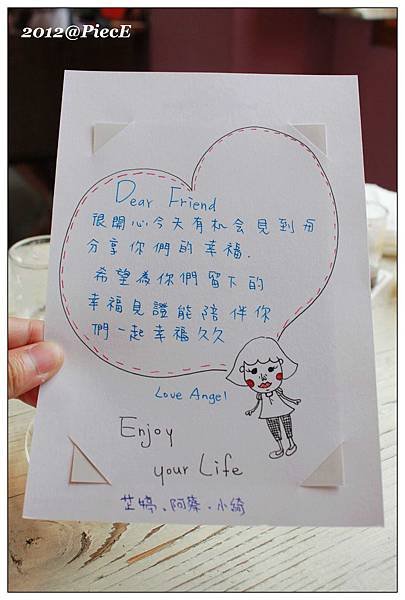 2012@PiecE
Dear Friend
很開心今天有机会見到和
分享你們的幸福.
希望為你們留下的
幸福見證能陪伴你
們一起幸福久久
Love Angel
Enjoy
your Life
芷婷.阿蓁.小綺